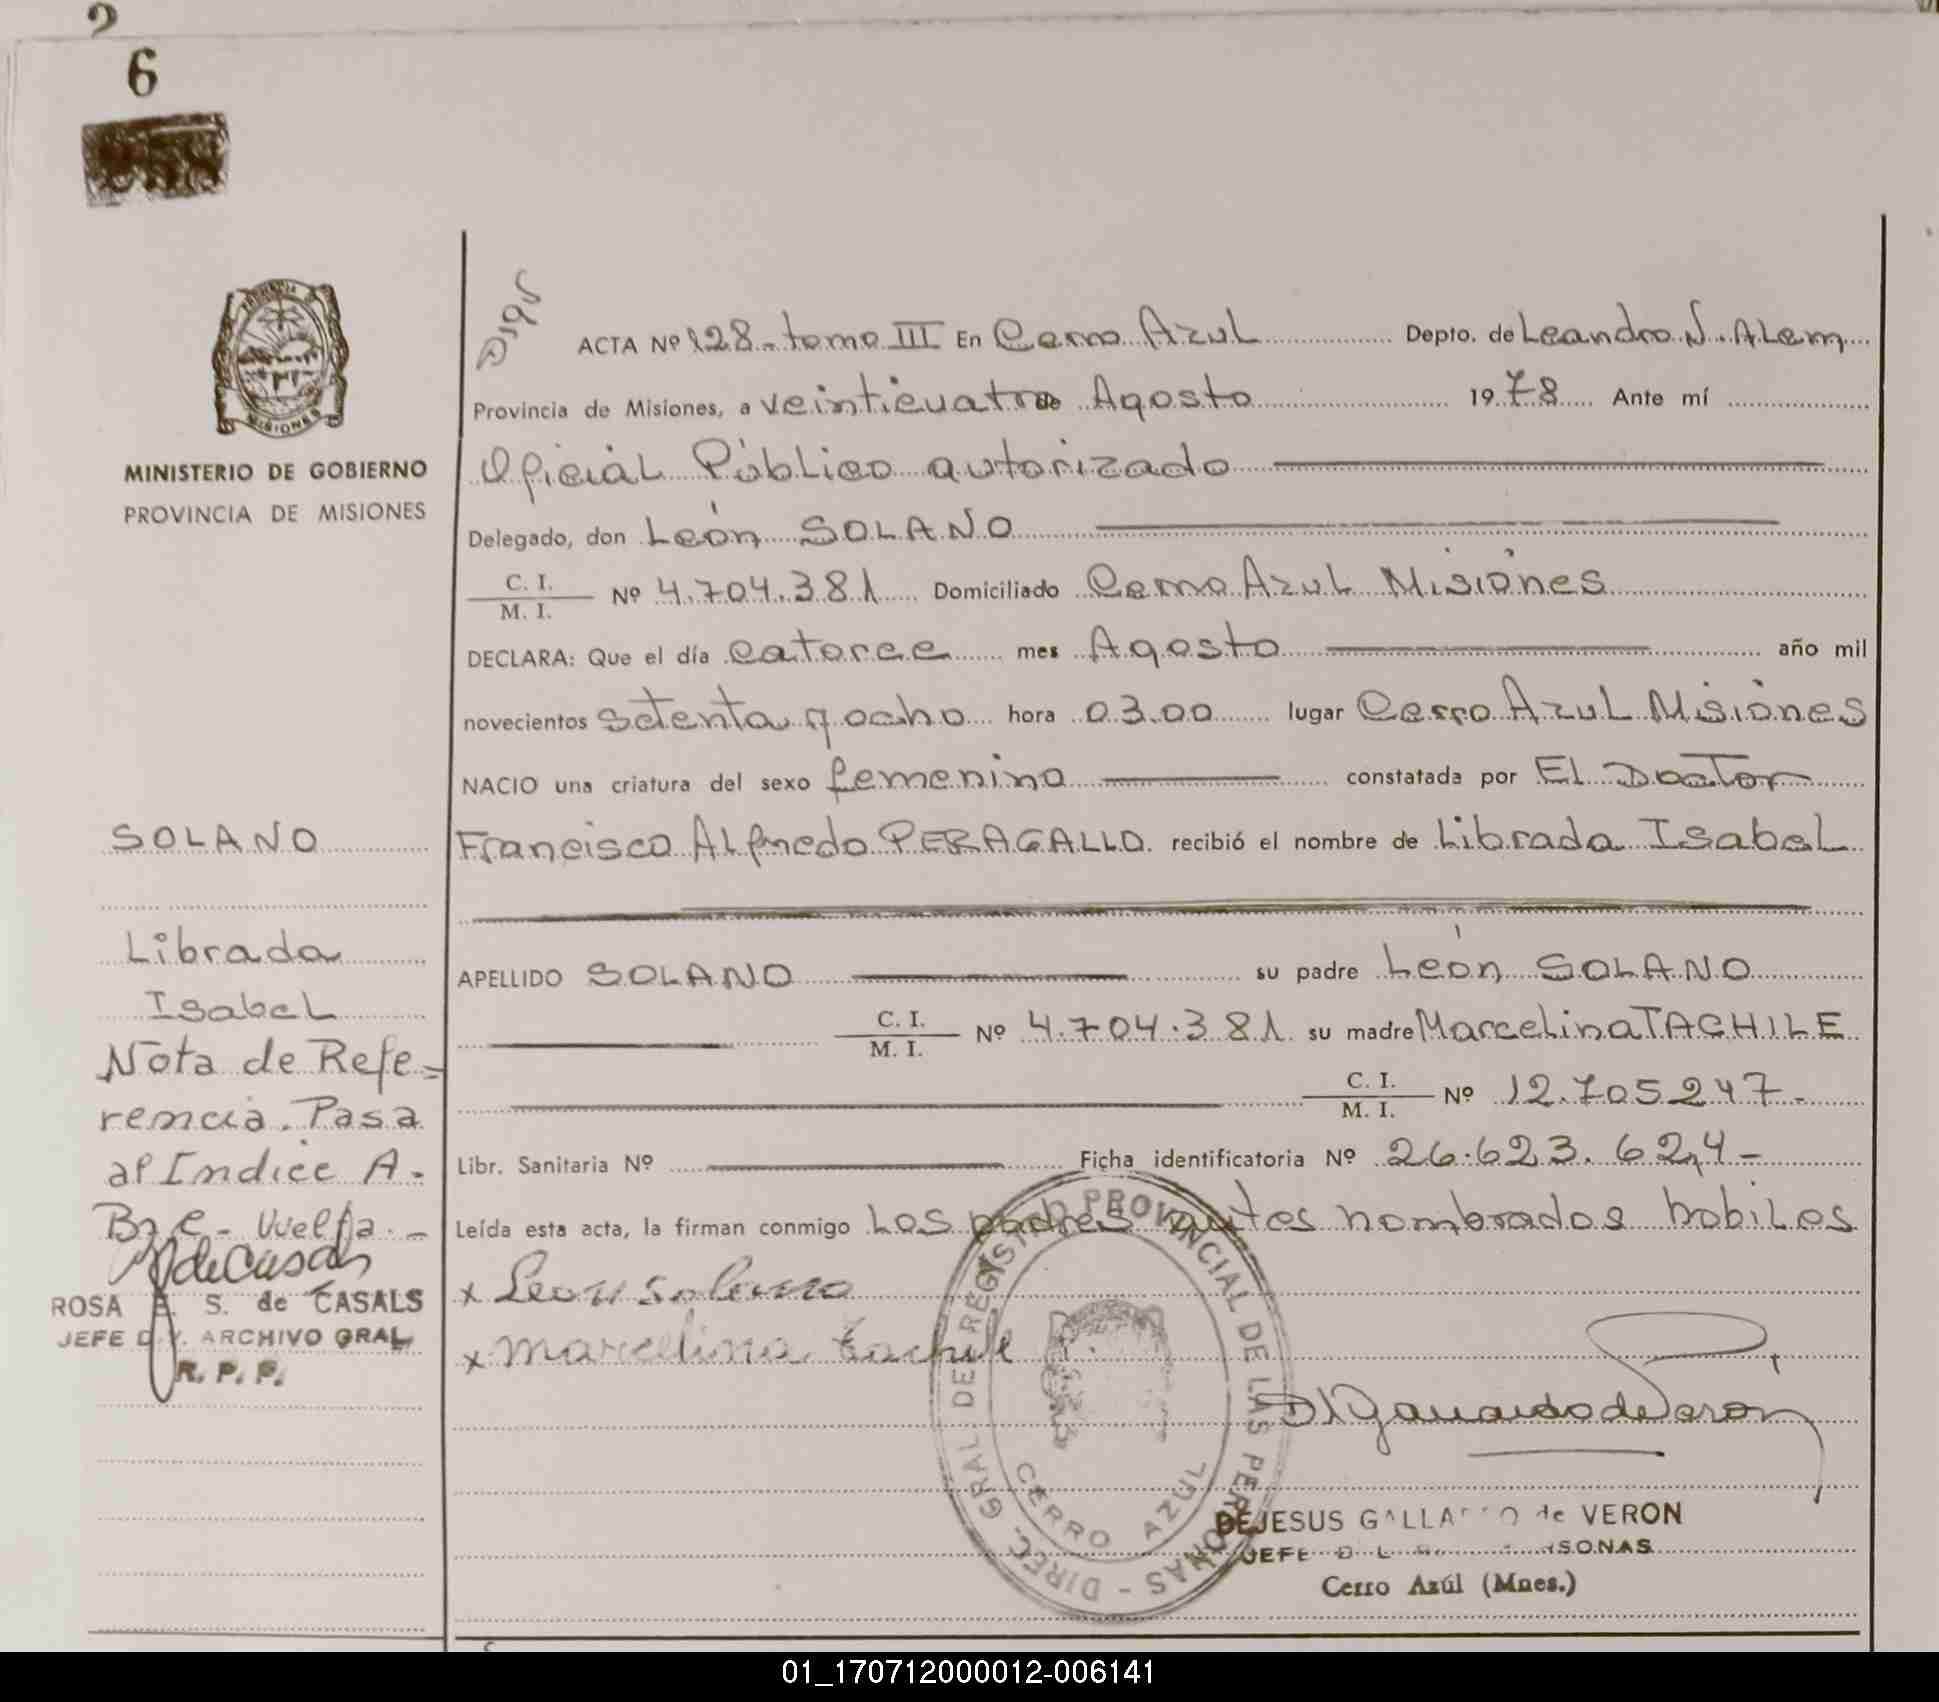 2
6
MINISTERIO DE GOBIERNO
PROVINCIA DE MISIONES
ACTA Nº 128.- tomo III En Cerro Azul Depto. de Leandro N. ALem
Provincia de Misiones, a veinticuatro de Agosto 1978 Ante mí
Oficial Público autorizado
Delegado, don León SOLANO
C. I.
M. I. Nº 4.704.381 Domiciliado Cerro Azul Misiones
DECLARA: Que el día catorce mes Agosto año mil
novecientos setenta y ocho hora 03.00 lugar Cerro Azul Misiones
NACIO una criatura del sexo femenino constatada por El Doctor
Francisco Alfredo PERAGALLO recibió el nombre de Librada Isabel
APELLIDO SOLANO su padre León SOLANO
C. I.
M. I. Nº 4.704.381 su madre Marcelina TACHILE
C. I.
M. I. Nº 12.705247-
Libr. Sanitaria Nº Ficha identificatoria Nº 26.623.624-
Leída esta acta, la firman conmigo Los padres antes nombrados hobiles
x Leon solano
x marcelina tachile
SOLANO
Librada
Isabel
Nota de Refe-
rencia. Pasa
al Indice A-
Bze- Vuelta.-
ROSA E. S. de CASALS
JEFE DIV. ARCHIVO GRAL
R. P. P.
DIREC. GRAL. DE REGISTRO PROVINCIAL DE LAS PERSONAS -
CERRO AZUL
DJGallardo de Veron
DEJESUS GALLARDO de VERON
JEFE PERSONAS
Cerro Azúl (Mnes.)
01_170712000012-006141